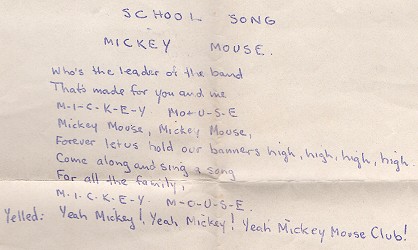 SCHOOL SONG
MICKEY MOUSE.
Who's the leader of the band
Thats made for you and me
M-I-C-K-E-Y Mo+U-S-E
Mickey Mouse, Mickey Mouse,
Forever let us hold our banners high, high, high, high.
Come along and sing a song
For all the family,
M-I-C-K-E-Y M-O-U-S-E.
Yelled: Yeah Mickey! Yeah Mickey! Yeah Mickey Mouse Club!